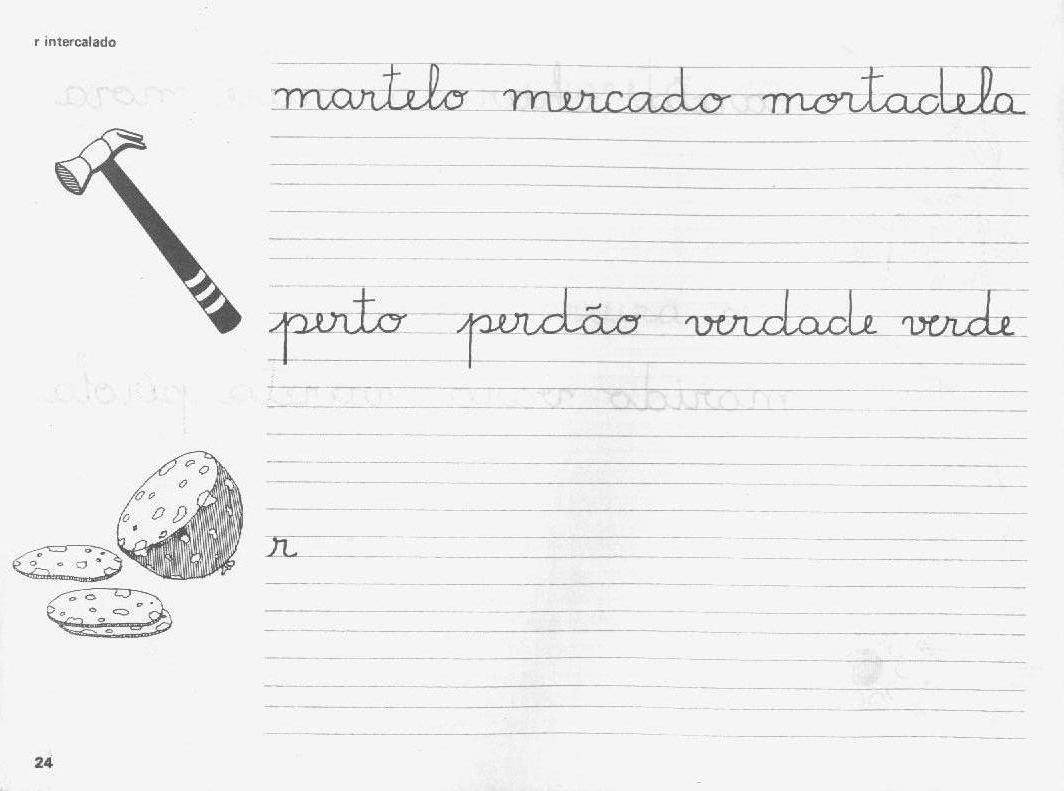 r intercalado
martelo mercado mortadela
perto perdão verdade verde
r
24